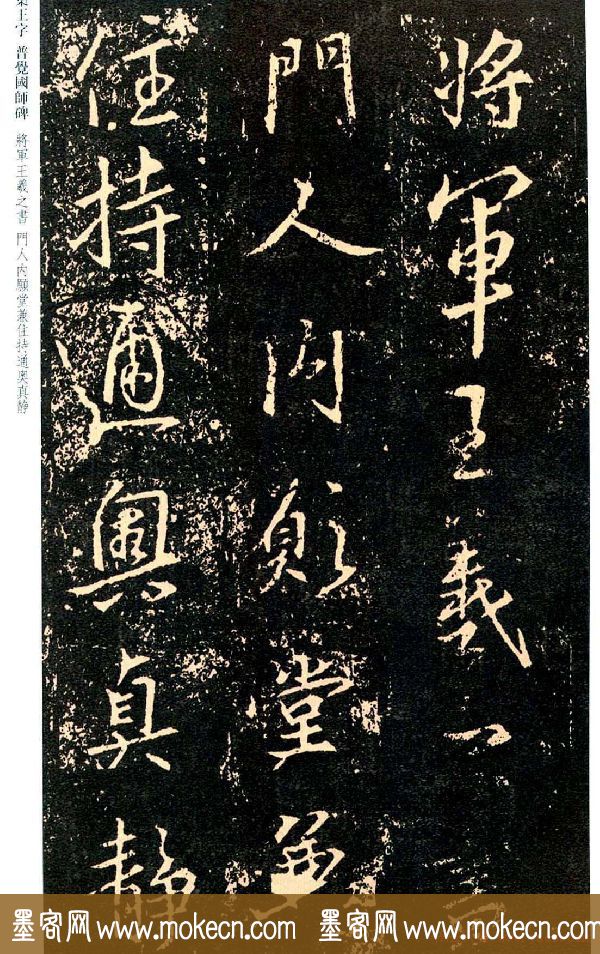 將軍王羲之
門人內願堂兼
住持通奧真静
王字 普覺國師碑 將軍王羲之書 門人內願堂兼住持通奧真静
墨客网 www.mokecn.com 墨客网 www.mokecn.com